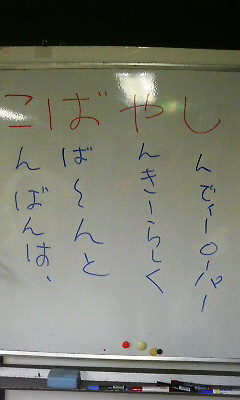 こばやし
んばんは、
ば〜んと
んきーらしく
んでィーローパー